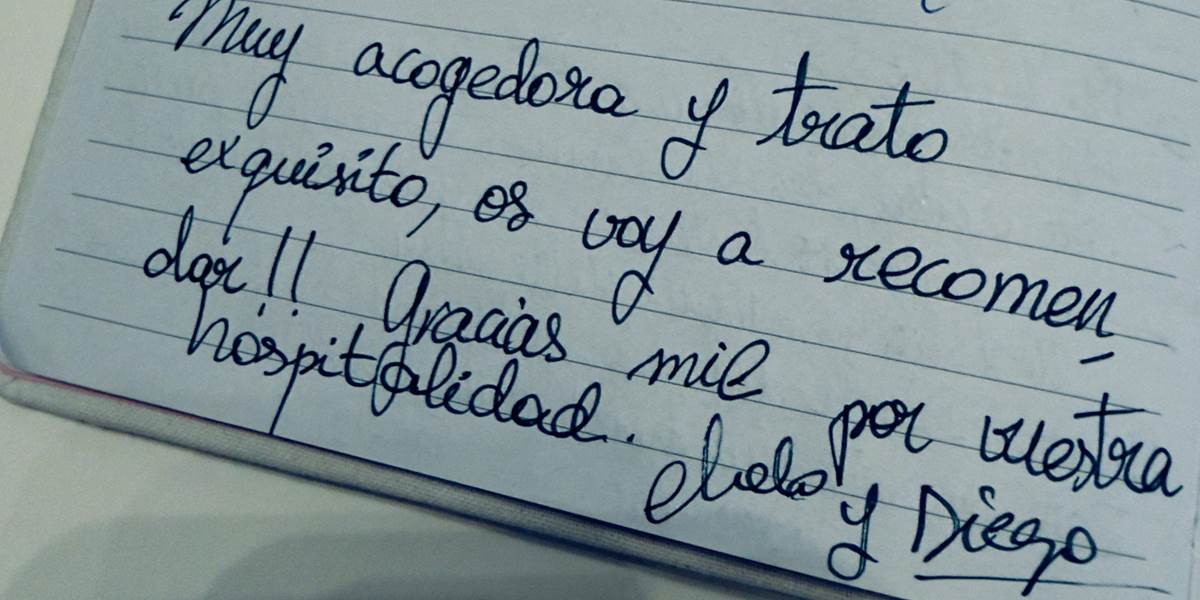 Muy acogedora y trato
exquisito, os voy a recomen
dar!! Gracias mil por vuestra
hospitalidad.
y Diego